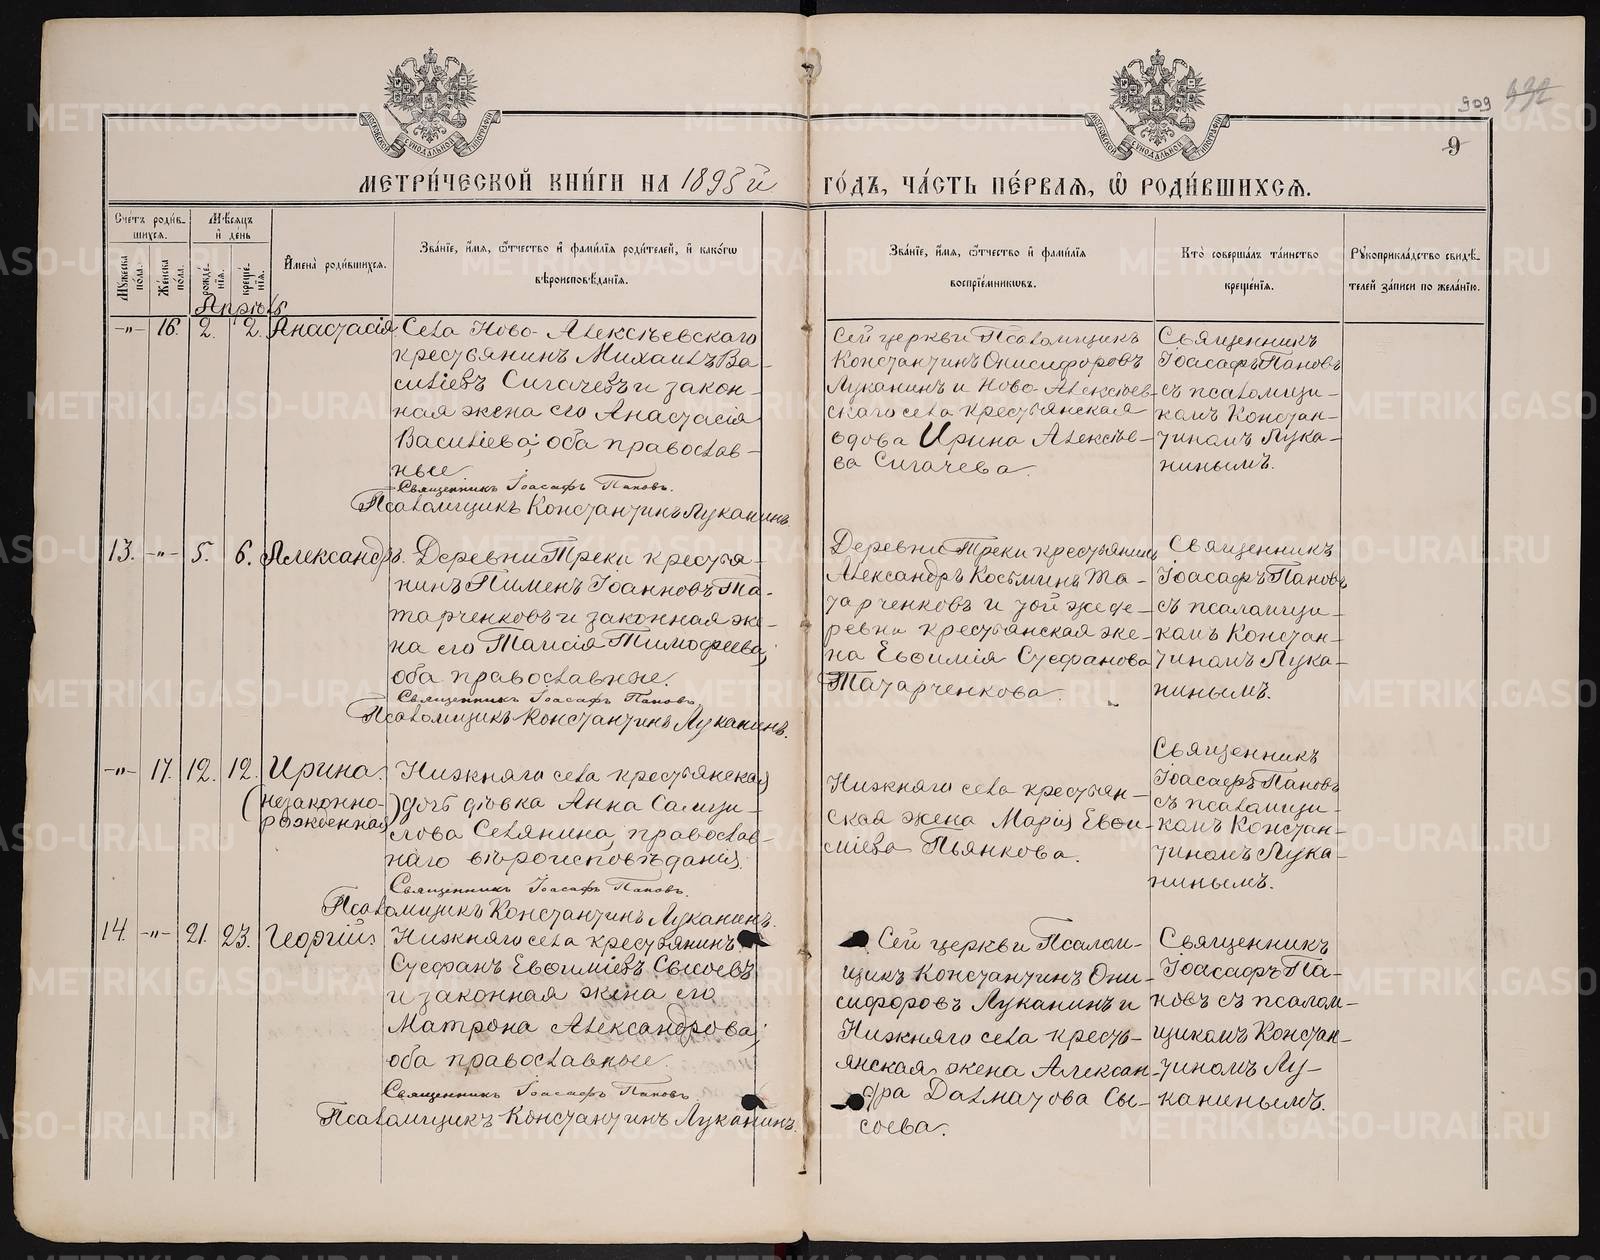 909 992
9
МОСКОВСКОЙ СУНОДАЛЬНОЙ ТИПОГРАФІИ
МОСКОВСКОЙ СУНОДАЛЬНОЙ ТИПОГРАФІИ
МЕТРИ́ЧЕСКОЙ КНИ́ГИ НА 1895й ГО́ДЪ, ЧА́СТЬ ПЕ́РВАѦ, Ѡ҆ РОДИ́ВШИХСѦ.
Сче́тъ роди́в-
шихсѧ.
Мꙋжеска пола.
Же́нска пола.
Мѣ́сѧцъ
и҆ де́нь
рожде́нїѧ.
креще́нїѧ.
И҆мена̀ роди́вшихсѧ.
Зва́нїе, и҆́мѧ, ѻ҆́тчество и҆ фами́лїѧ роди́телей, и҆ како́гѡ
вѣроисповѣ́данїѧ.
Зва́нїе, и҆́мѧ, ѻ҆́тчество и҆ фами́лїѧ
воспрїе́мникѡвъ.
Кто̀ соверша́лъ та́инство
креще́нїѧ.
Рꙋкоприкла́дство свидѣ́-
телей за́писи по жела́нїю.
Апрѣль
-"- 16. 2. 2. Анастасія
Села Ново-Алексѣевскаго
крестьянинъ Михаилъ Ва-
сильевъ Сигачевъ и закон-
ная жена его Анастасія
Васильева; оба православ-
ные.
Священникъ Іоасафъ Пановъ.
Псаломщикъ Константинъ Луканинъ.
Сей церкви Псаломщикъ
Константинъ Онисифоровъ
Луканинъ и Ново-Алексѣев-
скаго села крестьянская
вдова Ирина Алексѣе-
ва Сигачева.
Священникъ
Іоасафъ Пановъ
съ псаломщи-
комъ Констан-
тиномъ Лука-
нинымъ.
13. -"- 5. 6. Александръ.
Деревни Треки крестья-
нинъ Пименъ Іоанновъ Та-
тарченковъ и законная же-
на его Таисія Тимофеева;
оба православные.
Священникъ Іоасафъ Пановъ.
Псаломщикъ Константинъ Луканинъ.
Деревни Треки крестьянинъ
Александръ Косьминъ Та-
тарченковъ и той же де-
ревни крестьянская же-
на Евѳимія Стефанова
Татарченкова.
Священникъ
Іоасафъ Пановъ
съ псаломщи-
комъ Констан-
тиномъ Лука-
нинымъ.
-"- 17. 12. 12. Ирина.
(незаконно-
рожденная)
Нижняго села крестьянская
дочь дѣвка Анна Самци-
лова Селянина, православ-
наго вѣроисповѣданія.
Священникъ Іоасафъ Пановъ.
Псаломщикъ Константинъ Луканинъ.
Нижняго села крестьян-
ская жена Марія Евѳи-
міева Пьянкова.
Священникъ
Іоасафъ Пановъ
съ псаломщи-
комъ Констан-
тиномъ Лука-
нинымъ.
14. -"- 21. 23. Георгій
Нижняго села крестьянинъ
Стефанъ Евѳиміевъ Сысоевъ
и законная жена его
Матрона Александрова;
оба православные.
Священникъ Іоасафъ Пановъ.
Псаломщикъ Константинъ Луканинъ.
Сей церкви Псалом-
щикъ Константинъ Они-
сифоровъ Луканинъ и
Нижняго села кресть-
янская жена Алексан-
дра Далматова Сы-
соева.
Священникъ
Іоасафъ Па-
новъ съ псалом-
щикомъ Констан-
тиномъ Лу-
канинымъ.
METRIKI.GASO-URAL.RU